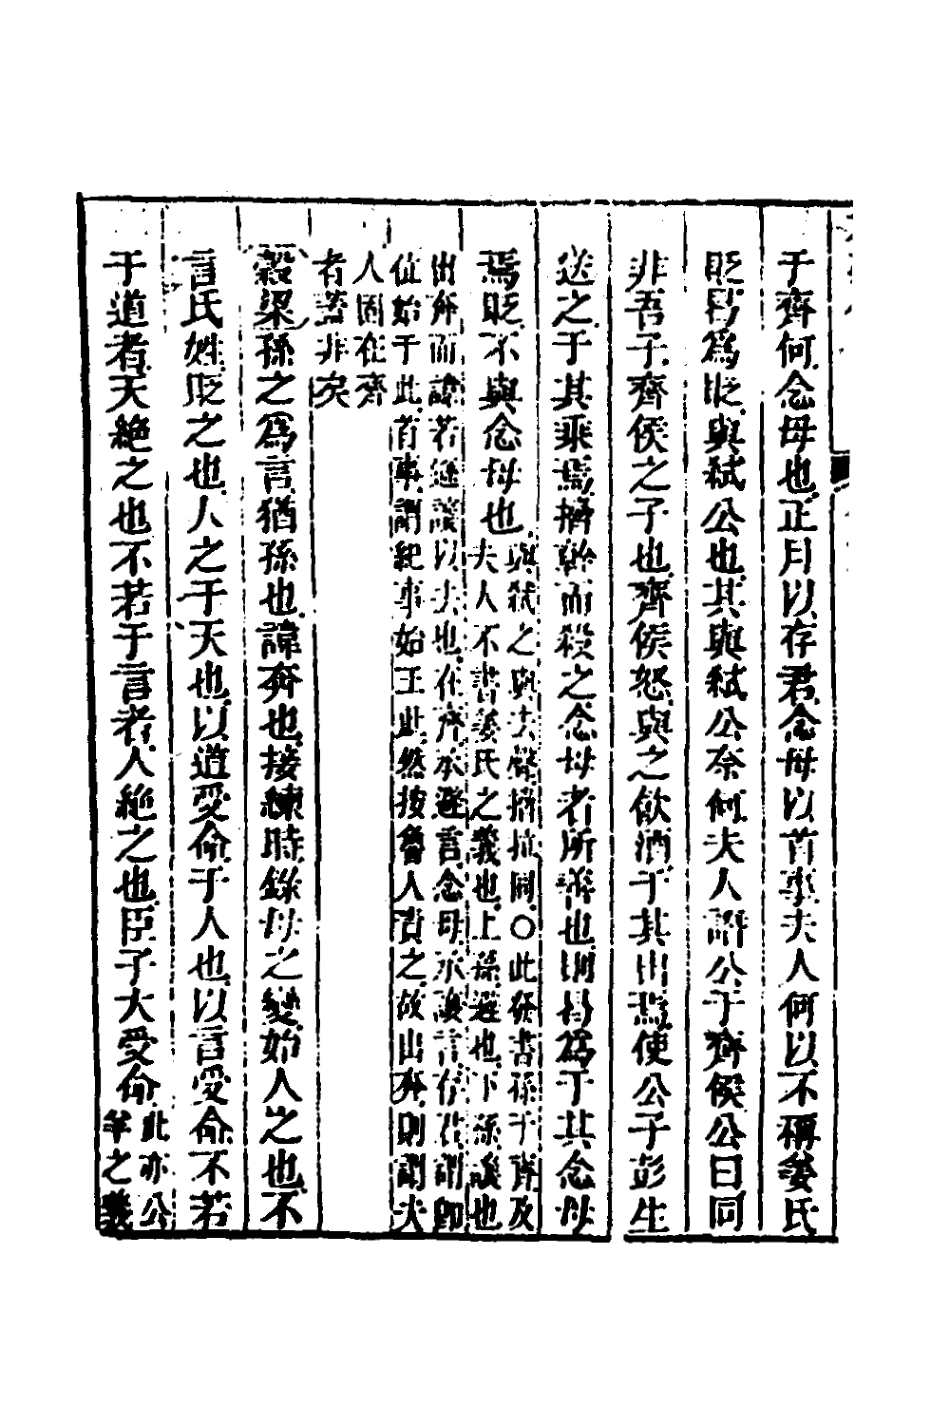 于齊何念母也正月以存君念母以首事夫人何以不稱姜氏
貶曷為貶與弒公也其與弒公奈何夫人譖公于齊侯公曰同
非吾子齊侯之子也齊侯怒與之飲酒于其出焉使公子彭生
送之于其乘焉搚幹而殺之念母者所善也則曷為于其念母
焉貶不與念母也
與弒之與去聲搚拉同○此發書孫于齊及
夫人不書姜氏之義也上孫遜也下孫諱也
出奔而諱若遜讓以去也在齊承避言念母承讓言存君謂即
位始于此首事謂紀事始王此然按魯人責之故出奔則謂夫
人固在齊
者蓋非矣
穀梁孫之為言猶孫也諱奔也接練時錄母之變始人之也不
言氏姓貶之也人之于天也以道受命于人也以言受命不若
于道者天絶之也不若于言者人絶之也臣子大受命
此亦公
羊之義